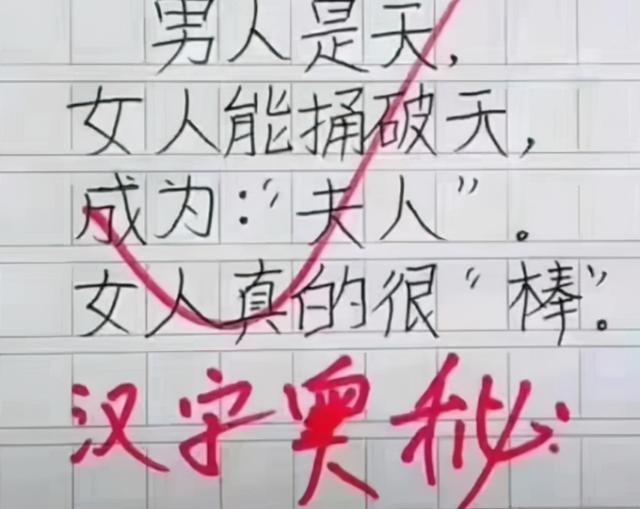 男人是天,
女人能捅破天,
成为:“夫人”。
女人真的很“棒”。
汉字奥秘